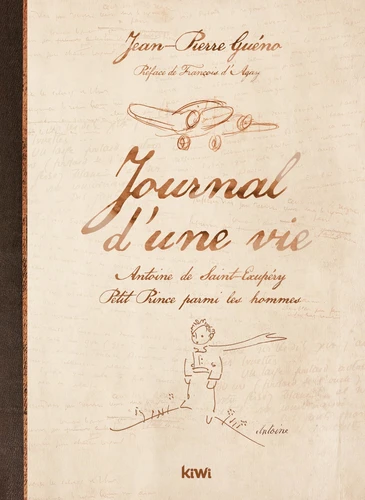 Jean-Pierre Guéno
Préface de François d'Agay
Journal
d'une vie
Antoine de Saint-Exupéry
Petit Prince parmi les hommes
Antoine
kiwi